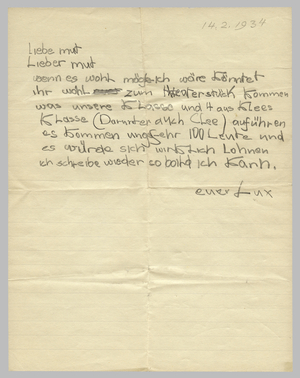 14.2.1934
Liebe mut
Lieber mut
wenn es wohl möglich wäre könntet
ihr wohl zum Theaterstück kommen
was unsere Klasse und 4 aus Clees
Klasse (Darunter auch Clee) aufführen
es kommen ungefehr 100 Leute und
es würde sich wirklich lohnen
ich schreibe wieder so bald ich kann.
euer Lux